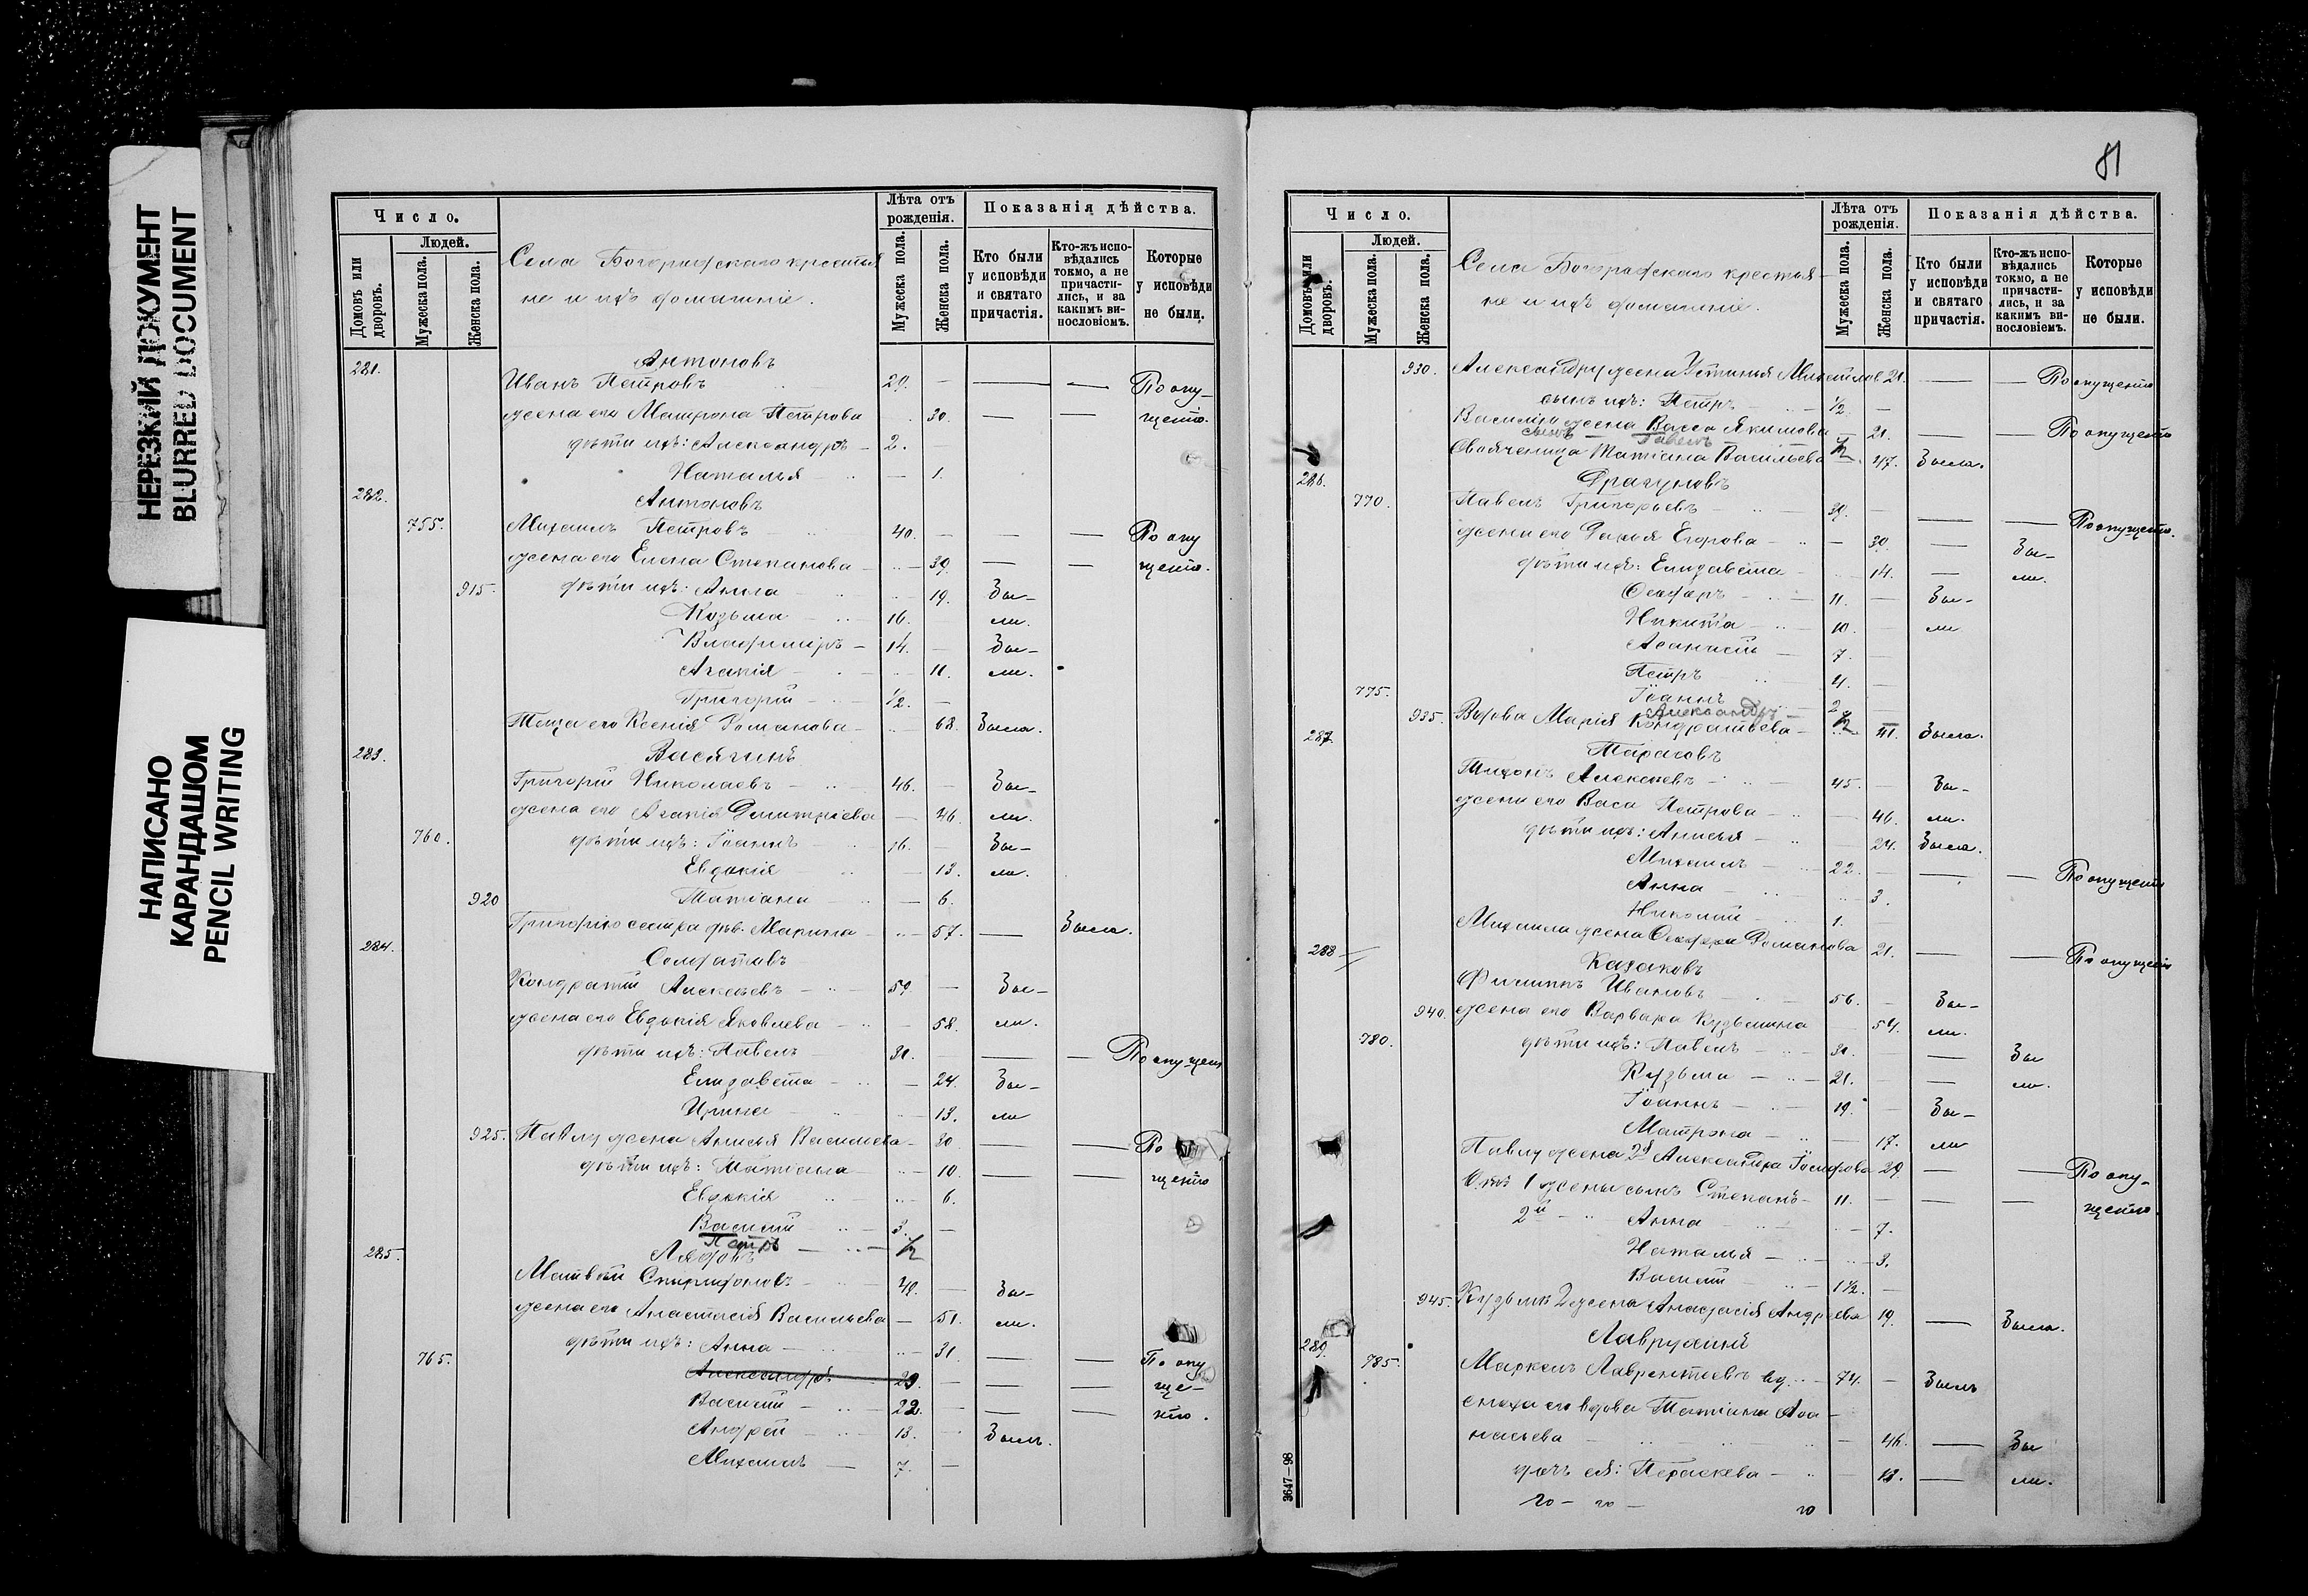 НЕРЕЗКИЙ ДОКУМЕНТ
BLURRED DOCUMENT
НАПИСАНО
КАРАНДАШОМ
PENCIL WRITING
Число.
Лѣта отъ рожденія.
Показанія дѣйства.
Домовъ или дворовъ.
Людей.
Мужеска пола.
Женска пола.
Села Богородскаго крестья
не и ихъ домашніе.
Мужеска пола.
Женска пола.
Кто были у исповѣди и святаго причастія.
Кто-жъ исповѣдались токмо, а не причастились, и за какимъ виннословіемъ.
Которые у исповѣди не были.
281. Антоновъ
Иванъ Петровъ 29. По опу-
жена его Матрона Петрова 30. щенію.
дѣти ихъ: Александръ 2.
Наталья 1.
282. Антоновъ
755. Михаилъ Петровъ 40. По опу
жена его Елена Степанова 39. щенію.
915. дѣти ихъ: Анна 19. Бы-
Козьма 16. ли.
Владиміръ 14. Бы-
Агапія 11. ли.
Григорій ½.
Теща его Ксенія Романова 68. Была.
283. Васягинъ
Григорій Николаевъ 46. Бы-
жена его Агапія Димитріева 46. ли.
760. дѣти ихъ: Іоаннъ 16. Бы-
Евдокія 13. ли.
920 Татіана 6.
Григорію сестра дѣв. Марина 57. Была.
284. Солдатовъ
Кондратій Алексѣевъ 59. Бы-
жена его Евдокія Яковлева 58. ли.
дѣти ихъ: Павелъ 31. По опущен
Елизавета 24. Бы-
Ирина 13. ли
925. Павлу жена Анисья Васильева 30. По
дѣти ихъ: Татіана 10. щенію
Евдокія 6.
Василій 3.
Петръ ½
285.
Матвѣй Спиридоновъ 49. Бы-
жена его Анастасія Васильева 51. ли.
дѣти ихъ: Анна 31. По опу
765. Александръ 29. ще-
Василій 22. нію.
Андрей 13. Былъ.
Михаилъ 7.
81
Число.
Лѣта отъ рожденія.
Показанія дѣйства.
Домовъ или дворовъ.
Людей.
Мужеска пола.
Женска пола.
Села Богородскаго крестья-
не и ихъ домашніе.
Мужеска пола.
Женска пола.
Кто были у исповѣди и святаго причастія.
Кто-жъ исповѣдались токмо, а не причастились, и за какимъ виннословіемъ.
Которые у исповѣди не были.
930. Александру жена Устинья Михайлов 21. По опущенію
сынъ ихъ: Петръ ½.
Василію жена Васса Якимова 21. По опущенію
сынъ Павелъ ½
Своячевица Татіана Васильева 47. Была.
286. Драгуновъ
770. Павелъ Григорьевъ 39. По опущенію.
жена его Дарья Егорова 39. Бы-
дѣти ихъ: Елизавета 14. ли.
Ѳеодоръ 11. Бы-
Никита 10. ли
Аѳанасій 7.
Петръ 4.
775. Іоаннъ 2
Александръ ½
935. Вдова Марія Кондратьева Была.
287. Тарасовъ
Тихонъ Алексѣевъ 45. Бы-
жена его Васса Петрова 46. ли.
дѣти ихъ: Анисья 24. Была.
Михаилъ 22. По опущенію
Анна 3.
Николай 1.
Михаила жена Ѳеодора Романова 21. По опущенію
288 Казаковъ
Филиппъ Ивановъ 56. Бы-
940. жена его Варвара Кузьмина 54. ли.
780. дѣти ихъ: Павелъ 31. Бы
Кузьма 21. ли.
Іоаннъ 19. Бы-
Матрона 17. ли
Павлу жена 2я Александра Іосифова 29. По опу-
Отъ 1 жены сынъ Степанъ 11. щенію.
2й Анна 7.
Наталья 3.
Василій 1½.
945. Кузьмѣ жена Андреева 19. Была.
289. Лаврухинъ
785. Маркелъ Лаврентьевъ вд. 74. Былъ
сноха его вдова Татіана Аѳа-
насьева 46. Бы
дочь ея: Параскева 13. ли.
3647—98